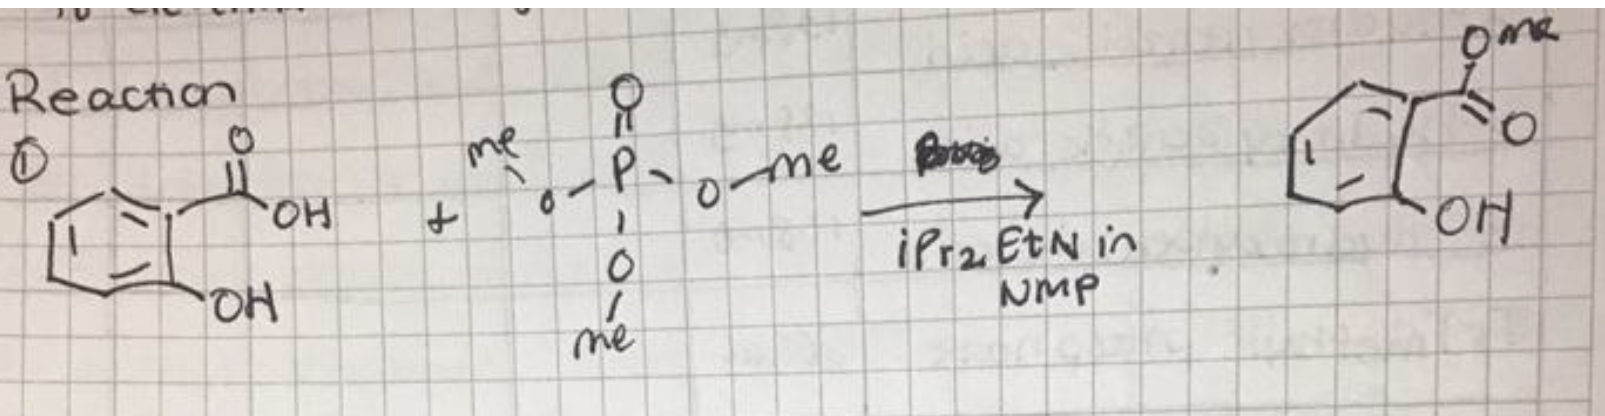 Reaction
①
O
OH
OH
+
O
Me
O
P
O
Me
O
Me
iPr2 EtN in
NMP
OMe
O
OH